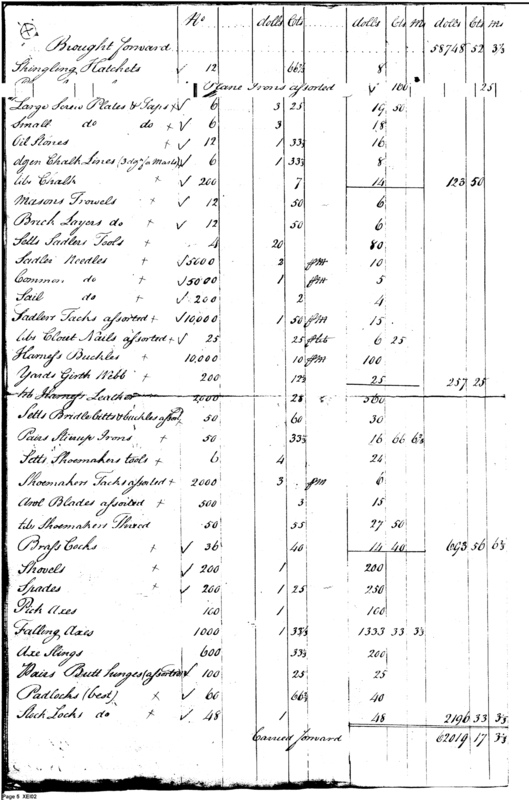 No dolls Cts dolls Cts Ms dolls Cts Ms
Brought forward 58748 52 3⅓
Shingling Hatchets √ 12 66⅔ 8
Plane Irons assorted √ 100 25
Large Screw Plates & Taps + √ 6 3 25 19 50
Small do do + √ 6 3 18
Oil Stones + √ 12 1 33⅓ 16
dozen Chalk Lines √ 6 1 33⅓ 8
lbs Chalk √ 200 7 14 123 50
Masons Trowels √ 12 50 6
Brick Layers do + √ 12 50 6
Setts Sadlers Tools + 4 20 80
Sadler Needles + √ 5000 2 10
Common do + √ 5000 1 5
Sail do + √ 200 2 4
Sadlers Tacks assorted + √ 10,000 1 50 15
lbs Closet Nails assorted + √ 25 25 6 25
Harness Buckles + 10,000 10 100
Yards Girth Webb + 200 12½ 25 257 25
lbs Harness Leather 2000 28 560
Setts Bridle bitts & buckles 50 60 30
Pairs Stirrup Irons + 50 33⅓ 16 66 6⅔
Setts Shoemakers tools + 6 4 24
Shoemakers Tacks assorted + 2000 3 6
Awl Blades assorted + 500 3 15
lbs Shoemakers Thread 50 55 27 50
Brass Cocks + √ 36 40 14 40 693 56 6⅔
Shovels + √ 200 1 200
Spades + √ 200 1 25 250
Pick Axes 100 1 100
Falling Axes 1000 1 33⅓ 1333 33 3⅓
Axe Slings 600 33⅓ 200
Pairs Butt hinges (assorted) √ 100 25 25
Padlocks (best) + √ 60 66⅔ 40
Stock Locks do + √ 48 1 48 2196 33 3⅓
Carried forward 62019 17 3⅓
Page 5 XEI02